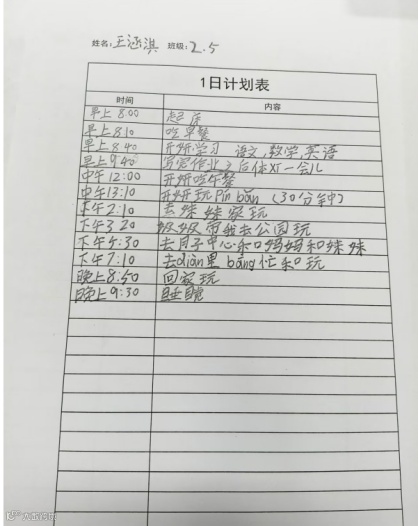 姓名: 王涵淇 班级: 2.5
1日计划表
时间 内容
早上 8:00 起床
早上 8:10 吃早餐
早上 8:40 开始学习 语文,数学,英语
早上 9:40 写完作业之后休息一会儿
中午 12:00 开始吃午餐
中午 13:10 开始玩Pin bǎn (30分钟)
下午 2:10 去妹妹家玩
下午 3:20 奶奶带我去公园玩
下午 4:30 去月子中心和妈妈和妹妹
下午 7:10 去diàn里bāng忙和玩
晚上 8:50 回家玩
晚上 9:30 睡觉